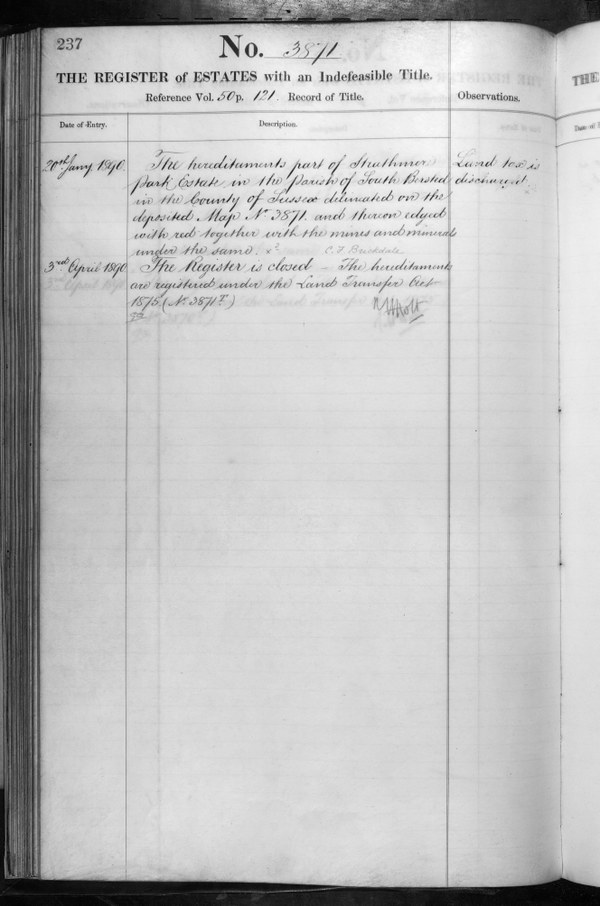 237
No. 3871
THE REGISTER of ESTATES with an Indefeasible Title.
Reference Vol. 50 p. 121. Record of Title.
Observations.
Date of Entry.
Description.
20th Jany 1890
The hereditaments part of Strathmore
Park Estate in the Parish of South Bersted
in the County of Sussex delineated on the
deposited Map No 3871 and thereon edged
with red together with the mines and minerals
under the same. C. F. Brickdale
Land tax is
discharged
3rd April 1890
The Register is closed – The hereditaments
are registered under the Land Transfer Act
1875 (No 3871T)
THE
Date of